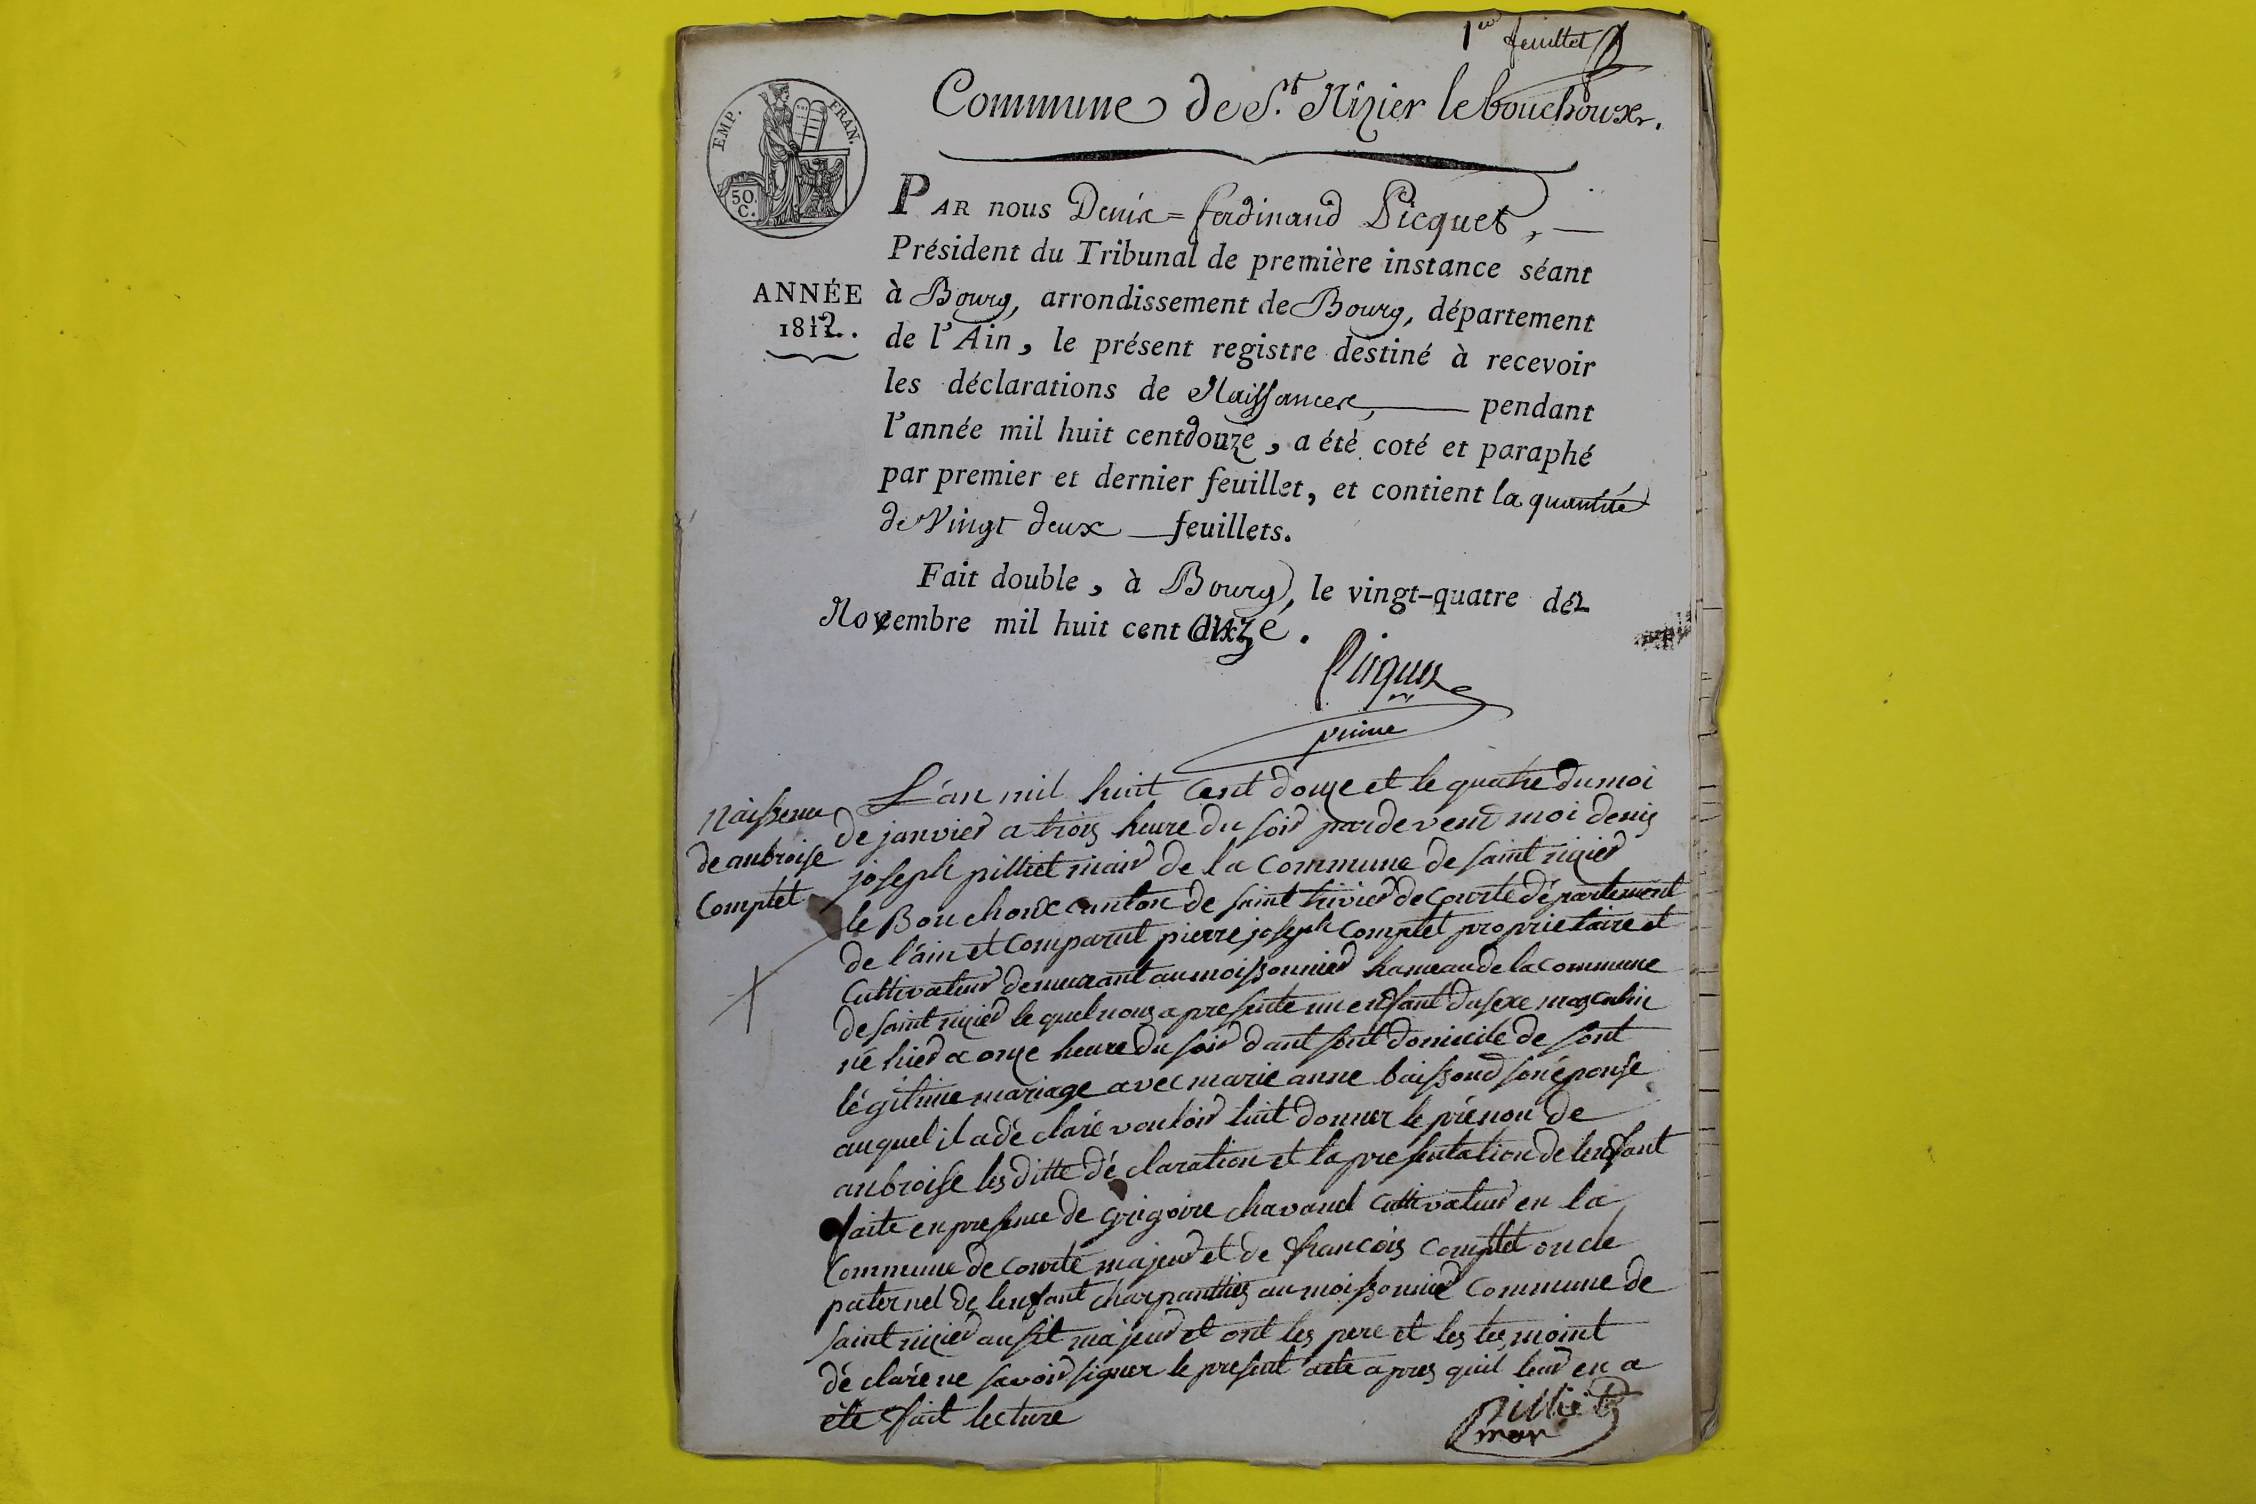 1er feuillet
Commune de St. Nizier lebouchoux.
EMP. FRAN.
50 C.
PAR nous Denis=ferdinand Picquet, —
Président du Tribunal de première instance séant
ANNÉE
1812.
à Bourg, arrondissement de Bourg, département
de l'Ain, le présent registre destiné à recevoir
les déclarations de Naissances, — pendant
l'année mil huit cent douze, a été coté et paraphé
par premier et dernier feuillet, et contient la quantité
de Vingt deux — feuillets.
Fait double, à Bourg, le vingt-quatre de
Novembre mil huit cent onze.
Picquet
L'an mil huit cent douze et le quatre du moi
Naissence
de anbroise
Comptet
de janvier a trois heure du soir pardevent moi denis
joseph pilliet mair de la Commune de saint nizier
le Bouchoux canton de saint trivier de courte département
de l'ain et comparut pierre joseph Comptet proprietaire et
Cultivateur demeurant au moissonnier hameau de la commune
de saint nizier le quel nous a presente un enfant du sexe masculin
né hier a onze heure du soir dant sont domicile de sont
légitime mariage avec marie anne baissond son éponse
auquel il a dé claré vouloir luit donner le prénon de
anbroise les ditte dé claration et la presentation de lenfant
faite en presence de grigoire chavand Cultivateur en la
Commune de courte majeur et de francois Comptet oncle
paternel de lenfant charpantties au moissonnier Commune de
saint nizier ausit majeur et ont les pere et les tesmoint
dé claré ne savoir signer le present acte apres quil leur en a
été fait lecture
pilliet
mar